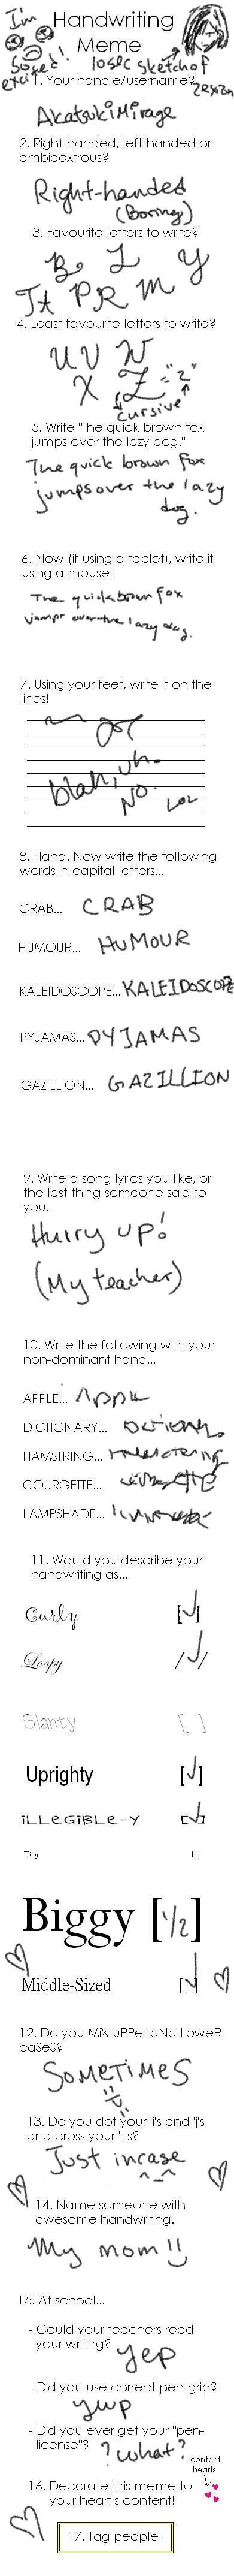 I'm so excited!
Handwriting Meme
10 sec sketch of Zexion
1. Your handle/username?
AkatsukiMirage
2. Right-handed, left-handed or
ambidextrous?
Right-handed
(Boring)
3. Favourite letters to write?
B L Y
Tt P R M
4. Least favourite letters to write?
U V N
X Z = "Z"
cursive
5. Write "The quick brown fox
jumps over the lazy dog."
The quick brown fox
jumps over the lazy
dog.
6. Now (if using a tablet), write it
using a mouse!
The quick brown fox
jumps over the lazy dog.
7. Using your feet, write it on the
lines!
blah, uh.
No. Lol
8. Haha. Now write the following
words in capital letters...
CRAB... CRAB
HUMOUR... HUMOUR
KALEIDOSCOPE... KALEIDOSCOPE
PYJAMAS... PYJAMAS
GAZILLION... GAZILLION
9. Write a song lyrics you like, or
the last thing someone said to
you.
Hurry up!
(My teacher)
10. Write the following with your
non-dominant hand...
APPLE... Apple
DICTIONARY...
HAMSTRING... HAMSTRING
COURGETTE...
LAMPSHADE...
11. Would you describe your
handwriting as...
Curly [√]
Loopy [√]
Slanty [ ]
Uprighty [√]
iLLeGiBLe-Y [√]
Tiny [ ]
Biggy [1/2]
Middle-Sized [√]
12. Do you MiX uPPer aNd LoweR
caSeS?
SOMETiMES
=D
13. Do you dot your 'i's and 'j's
and cross your 't's?
Just incase
^_^
14. Name someone with
awesome handwriting.
My mom!!
15. At school...
- Could your teachers read
your writing?
yep
- Did you use correct pen-grip?
yup
- Did you ever get your "pen-
license"? ? what?
content
hearts
16. Decorate this meme to
your heart's content!
17. Tag people!